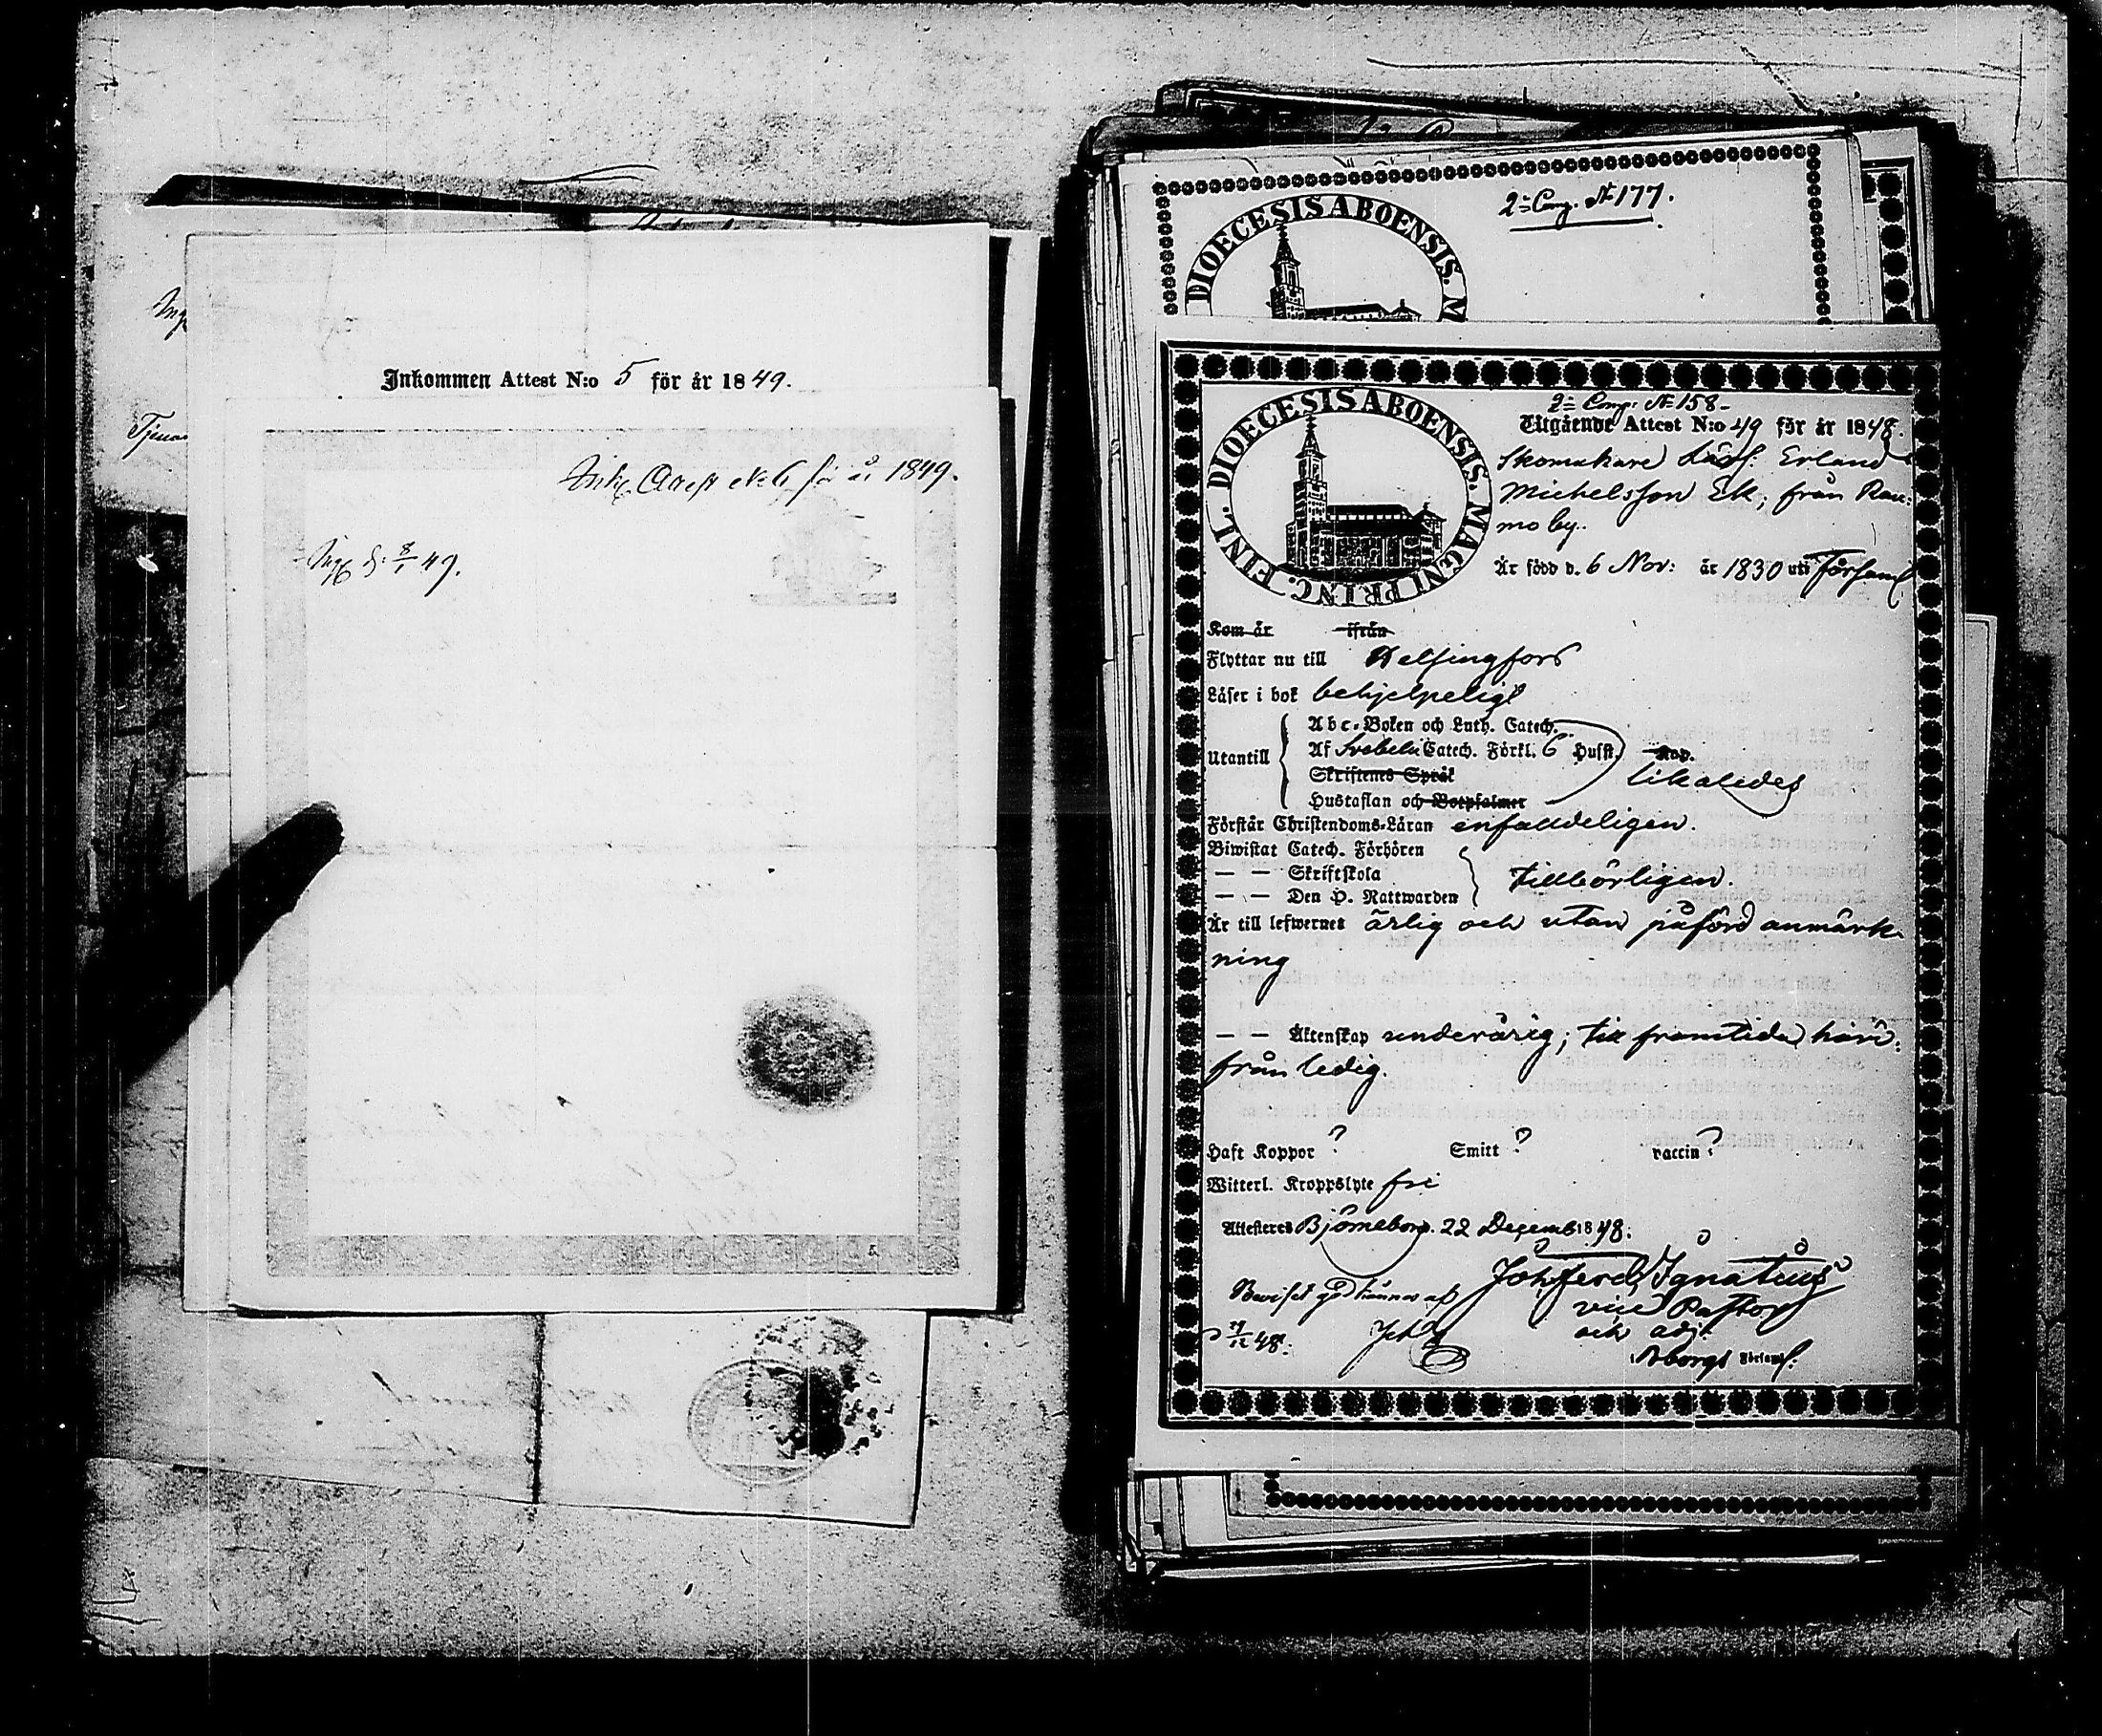 Inkommen Attest N:o 5 för år 1849.
Attest N 6 för år 1849.
8/1 49.
2:a Comp. N:177.
DIOECESIS ABOENSIS. M
2:a Comp. N:158
DIOECESIS ABOENSIS. MAGNI PRINC. FINL.
Utgående Attest N:o 49 för år 1848.
Skomakare Lärl. Erland
Michelsson Ek, från Rau:
mo by.
Är född d. 6 Nov: år 1830 uti Församl
Kom år ifrån
Flyttar nu till Helsingfors
Läser i bok behjelpeligt
Utantill
Abc-Boken och Luth. Catech.
Af Svebelii Catech. Förkl. 6 Hufst. Kap.
Skriftenes Språk
Hustaflan och Botpsalmer
likaledes
Förstår Christendoms-Läran enfaldeligen.
Biwistat Catech. Förhören
— — Skriftskola
— — Den H. Nattwarden
tillbörligen.
Är till lefwernet ärlig och utan påförd anmärk-
ning
— — Äktenskap underårig; till framtida häri:
från ledig.
Haft Koppor ? Smitt ? vaccin ?
Witterl. Kroppslyte fri
Attesteres Björneborg. 22 Decemb 1848.
Joh Ferd. Ignatius
vice Pastor
och adj.
Beviset godkännes af
/12 48.
Församl.
Tjena